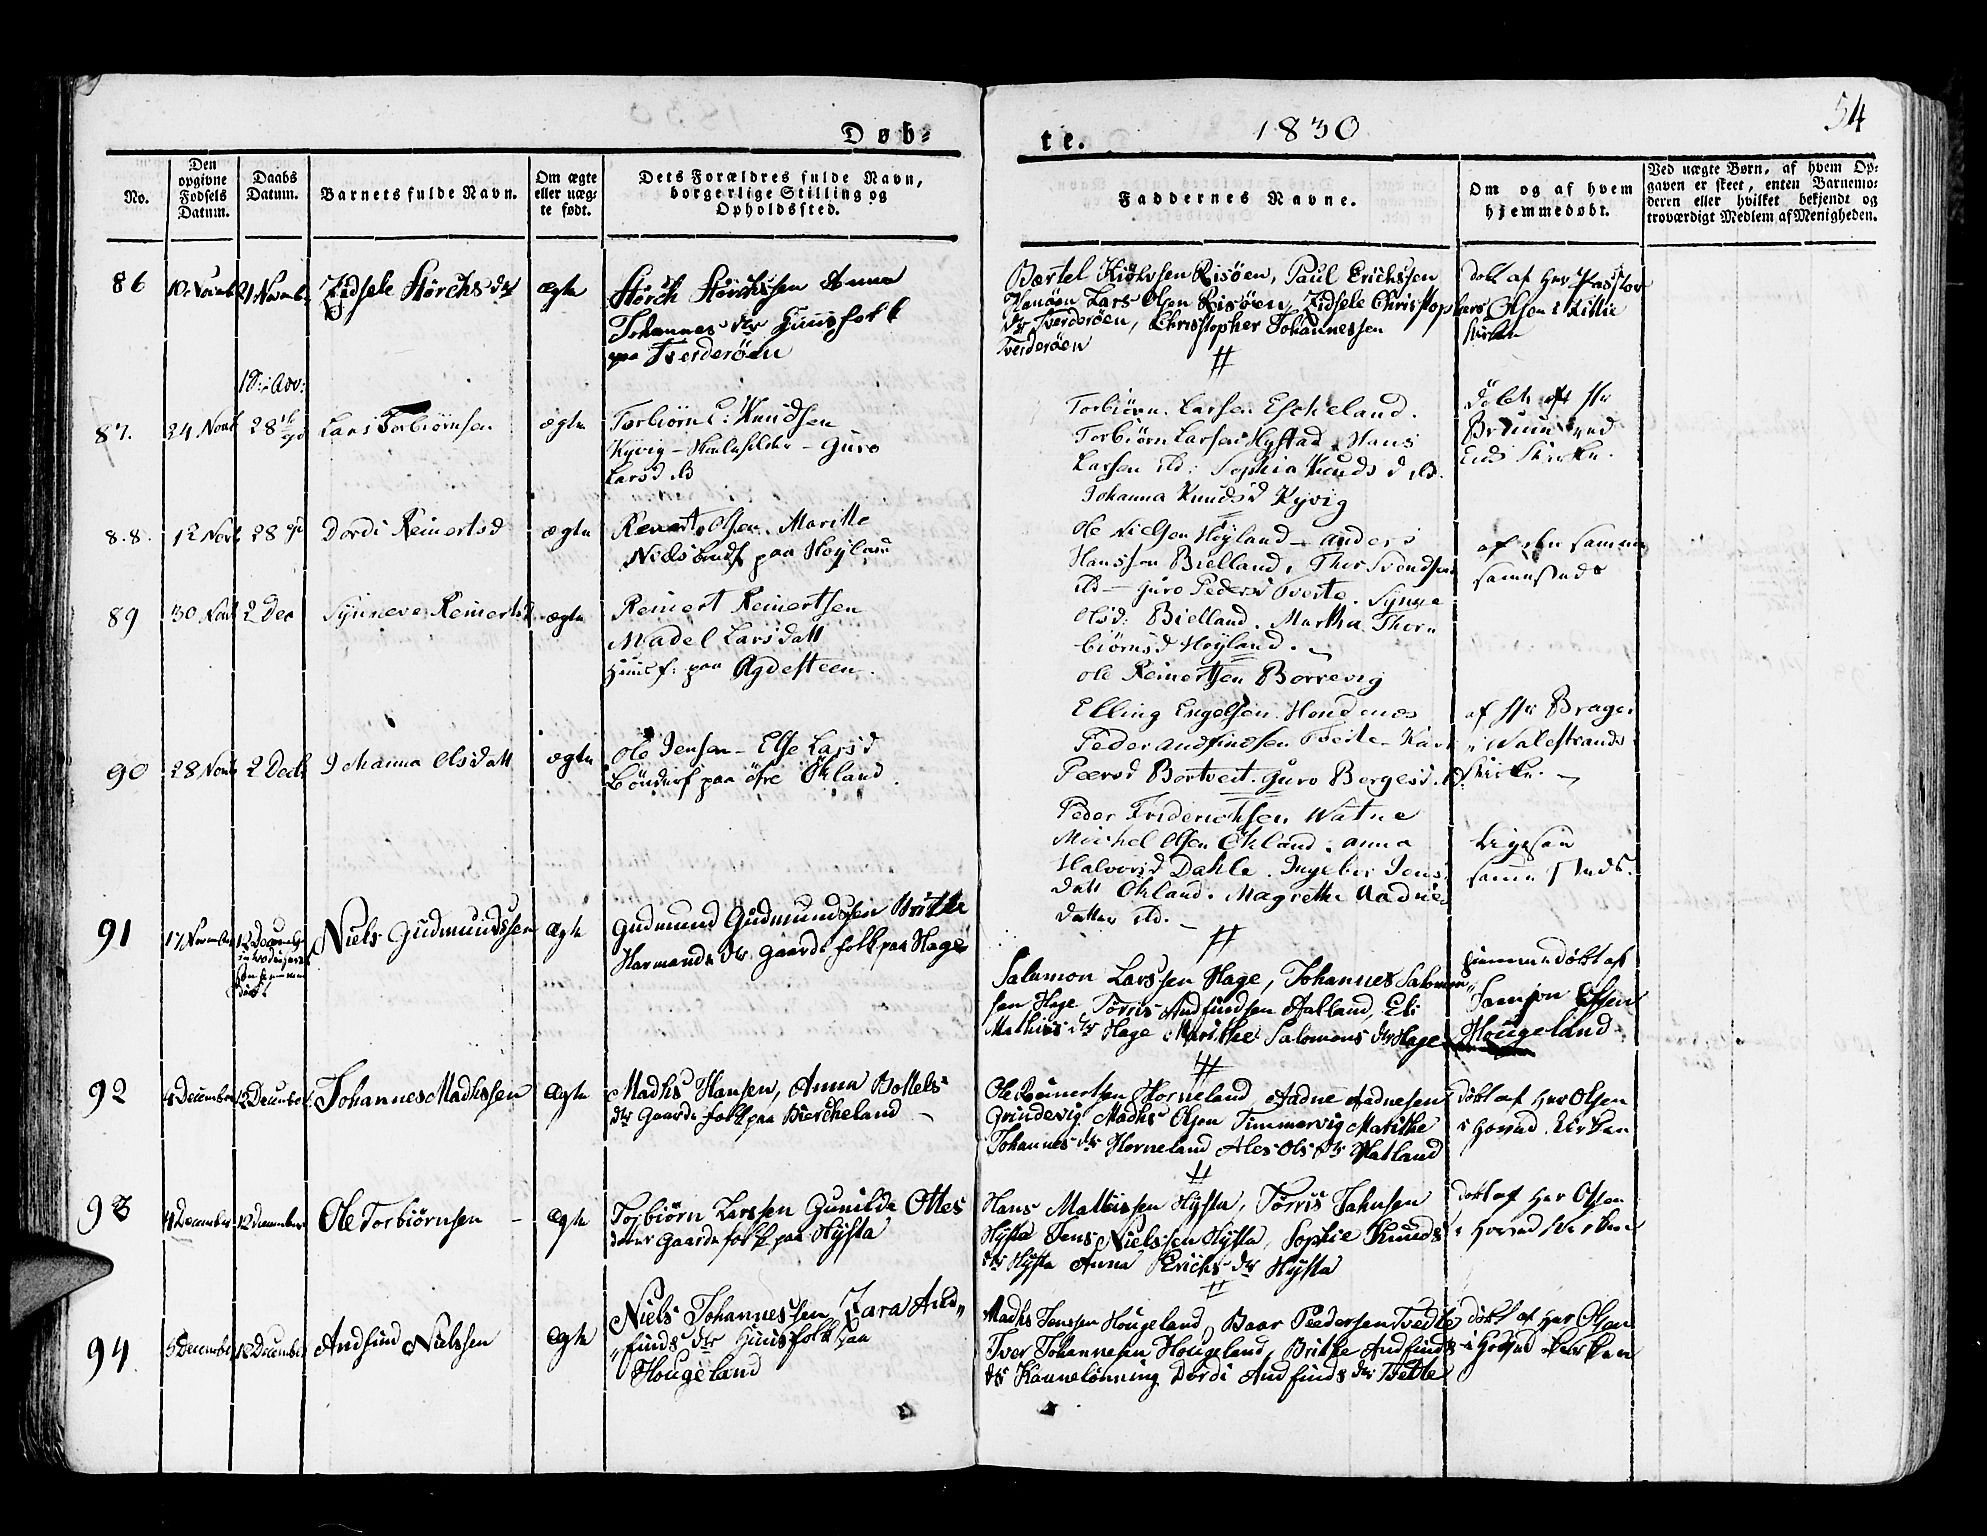 1830
54
Døb-
te.
No.
Den opgivne Fødsels Datum.
Daabs Datum.
Barnets fulde Navn.
Om ægte eller uæg-te født.
Dets Forældres fulde Navn, borgerlige Stilling og Opholdssted.
Faddernes Navne.
Om og af hvem hjemmedøbt.
Ved uægte Børn, af hvem Op-
gaven er skeet, enten Barnemo-
deren eller hvilket bekjendt og
troværdigt Medlem af Menigheden.
86
10 Novemb
21 Novemb
Zidsele Størchs dtr
ægte
Størch Størchssen Anna
Johannes dtr Huusfolk
paa Tverderöen
Bertel Risöen, Paul Erichssen
Lars Olsen Risöen, Zidsele Christophers
dtr Tverderöen, Christopher Johannessen
Tverderöen
döbt af Her Pastor
Olsen i
Kirke
87.
24 Novb
28
Lars Torbiörnsen
ægte
Torbiörn Knudsen
Kyvig - Guro
Larsd
Torbiörn Larsen Eskeland.
Torbiörn Larsen Hystad, Hans
Larsen ibd: Sophia Knudsd ibd.
Johanna Knudsd Kyvig
Döbt af Hr
Bruun ved
Eids Kirke.
88.
12 Novb
28
Dordi Reinertsd
ægte
Reinert Olsen. Marithe
Nielsd paa Høyland
Ole Nielsen Høyland - Anders
Hanssen Bielland, Thor Svendsen
ibd - Guro Pedersd Tveite. Synne
Olsd: Bielland. Martha Thor
biörnsd Høyland.
af den samme
sammesteds
89
30 Novb
2 Dec
Synneve Reinertsd
ægte
Reinert Reinertsen
Madel Larsdatt
Huusf: paa Agdesteen.
Ole Reinertsen Borrevig
Elling Engelsen
Peder Andfindsen Tveite - Kari
Peersd Bortveit. Guro Borgesd.
af Hr Brager
i Walestrands
Kirke.
90
28 Novb
2 Decb
Johanna Olsdatt
ægte
Ole Jensen - Else Larsd
paa öfre Ökland.
Peder Friderichsen Watne
Michel Olsen Ökland. Anna
Halvorsd Dahle. Ingebor Jens
datt Ökland. Magrethe Aadnes
datter ibd.
Ligesaa
sammesteds.
91
17 November
12 December
Niels Gudmundssen
Ægte
Gudmund Gudmundssen Brithe
Harmands dtr Gaardsfolk paa Hage
Salomon Larssen Hage, Johannes Salomon
sen Hage, Törris Andfindsen Aatland, Eli
Mathis dtr Hage Marithe Salomons dtr Hage
hjemmedöbt af
Samson Olsen
Hougeland
92
4 December
12 December
Johannes Madhssen
Ægte
Madhs Hansen, Anna Bottels
dtr Gaardsfolk paa Biercheland
Ole Reinertsen Horneland, Aadne Aadnesen
Grindevig Madhs Olsen Timmervig Marithe
Johannes dtr Horneland Ales Ols dtr Hatland
döbt af Her Olsen
i Kirken
93
4 December
12 December
Ole Torbiörnsen
Ægte
Torbiörn Larssen Gunilde Ottes
datter Gaardsfolk paa Hysta
Hans Mathissen Hysta, Törris Jahnsen
Hysta Jens Nielssen Hysta, Sophie Knuds
dtr Hysta Anna Erichs dtr Hysta
döbt af Her Olsen
i Kirken
94
5 December
12 December
Andfind Nielssen
Ægte
Niels Johannessen Zara And-
finds dtr Huusfolk paa
Hougeland
Madhs Jenssen Hougeland, Baar Pedersen Tvedte
Iver Johannessen Hougeland, Brithe Andfinds
dtr Kannelönning Dordi Andfinds dtr Tvette
döbt af Her Olsen
i Kirken